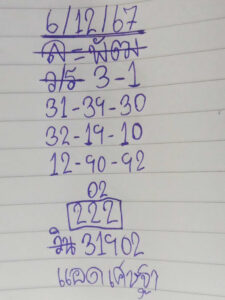 6/12/67
ล = พัฒม
ว/ร 3-1
31-39-30
32-19-10
12-90-92
02
222
วิน 31902
แอดเศรษฐา